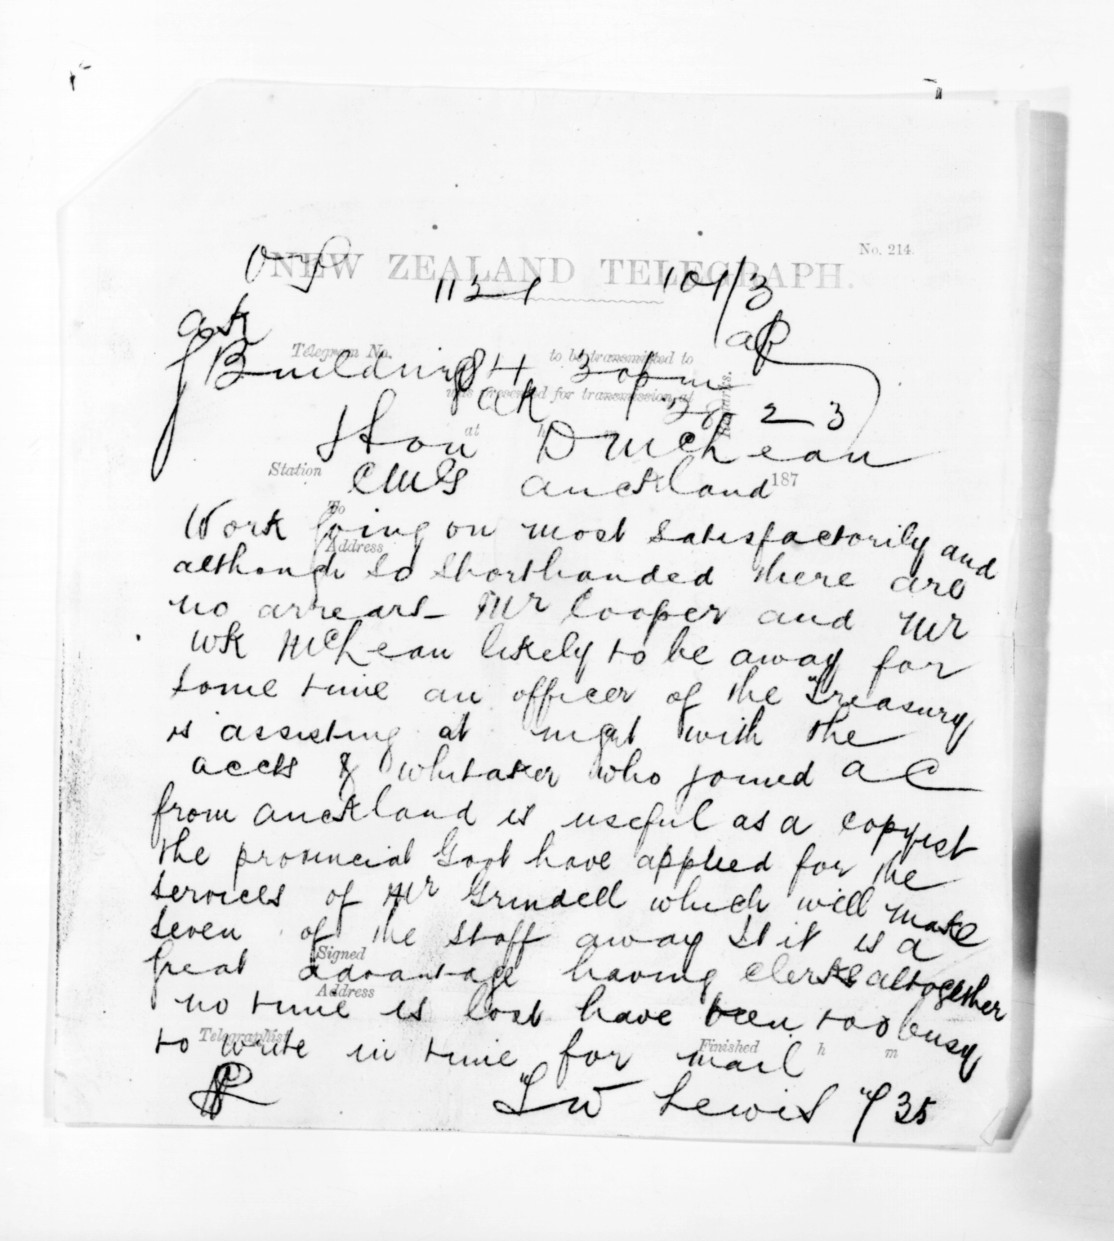 No. 214.
NEW ZEALAND TELEGRAPH.
101/3
Telegram No. to be transmitted to
Buildings
was presented for transmission at
Remarks.
23
at h
Hon D McLean
Station CMGS Auckland 187
To
Work going on most satisfactorily and
Address
although so shorthanded there are
no arrears Mr Cooper and Mr
WK McLean likely to be away for
some time an officer of the Treasury
is assisting at night with the
accts & Whitaker who joined AC
from Auckland is useful as a copyist
the provincial Govt have applied for the
services of Mr Grindell which will make
seven of the staff away St it is a
Signed
great advantage having clerks altogether
Address
no time is lost have been too busy
Telegraphist Finished h m
to write in time for mail
HW Lewis 35